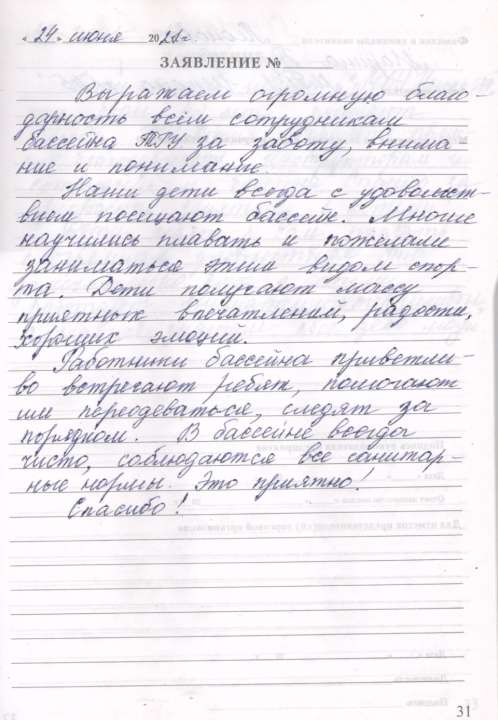 « 24 » июня 2021 г.
ЗАЯВЛЕНИЕ №
Выражаем огромную благо-
дарность всем сотрудникам
бассейна ТГУ за заботу, внима-
ние и понимание.
Наши дети всегда с удовольст-
вием посещают бассейн. Многие
научились плавать и пожелали
заниматься этим видом спор-
та. Дети получают массу
приятных впечатлений, радости,
хороших эмоций.
Работники бассейна приветли-
во встречают ребят, помогают
им переодеваться, следят за
порядком. В бассейне всегда
чисто, соблюдаются все санитар-
ные нормы. Это приятно!
Спасибо!
31